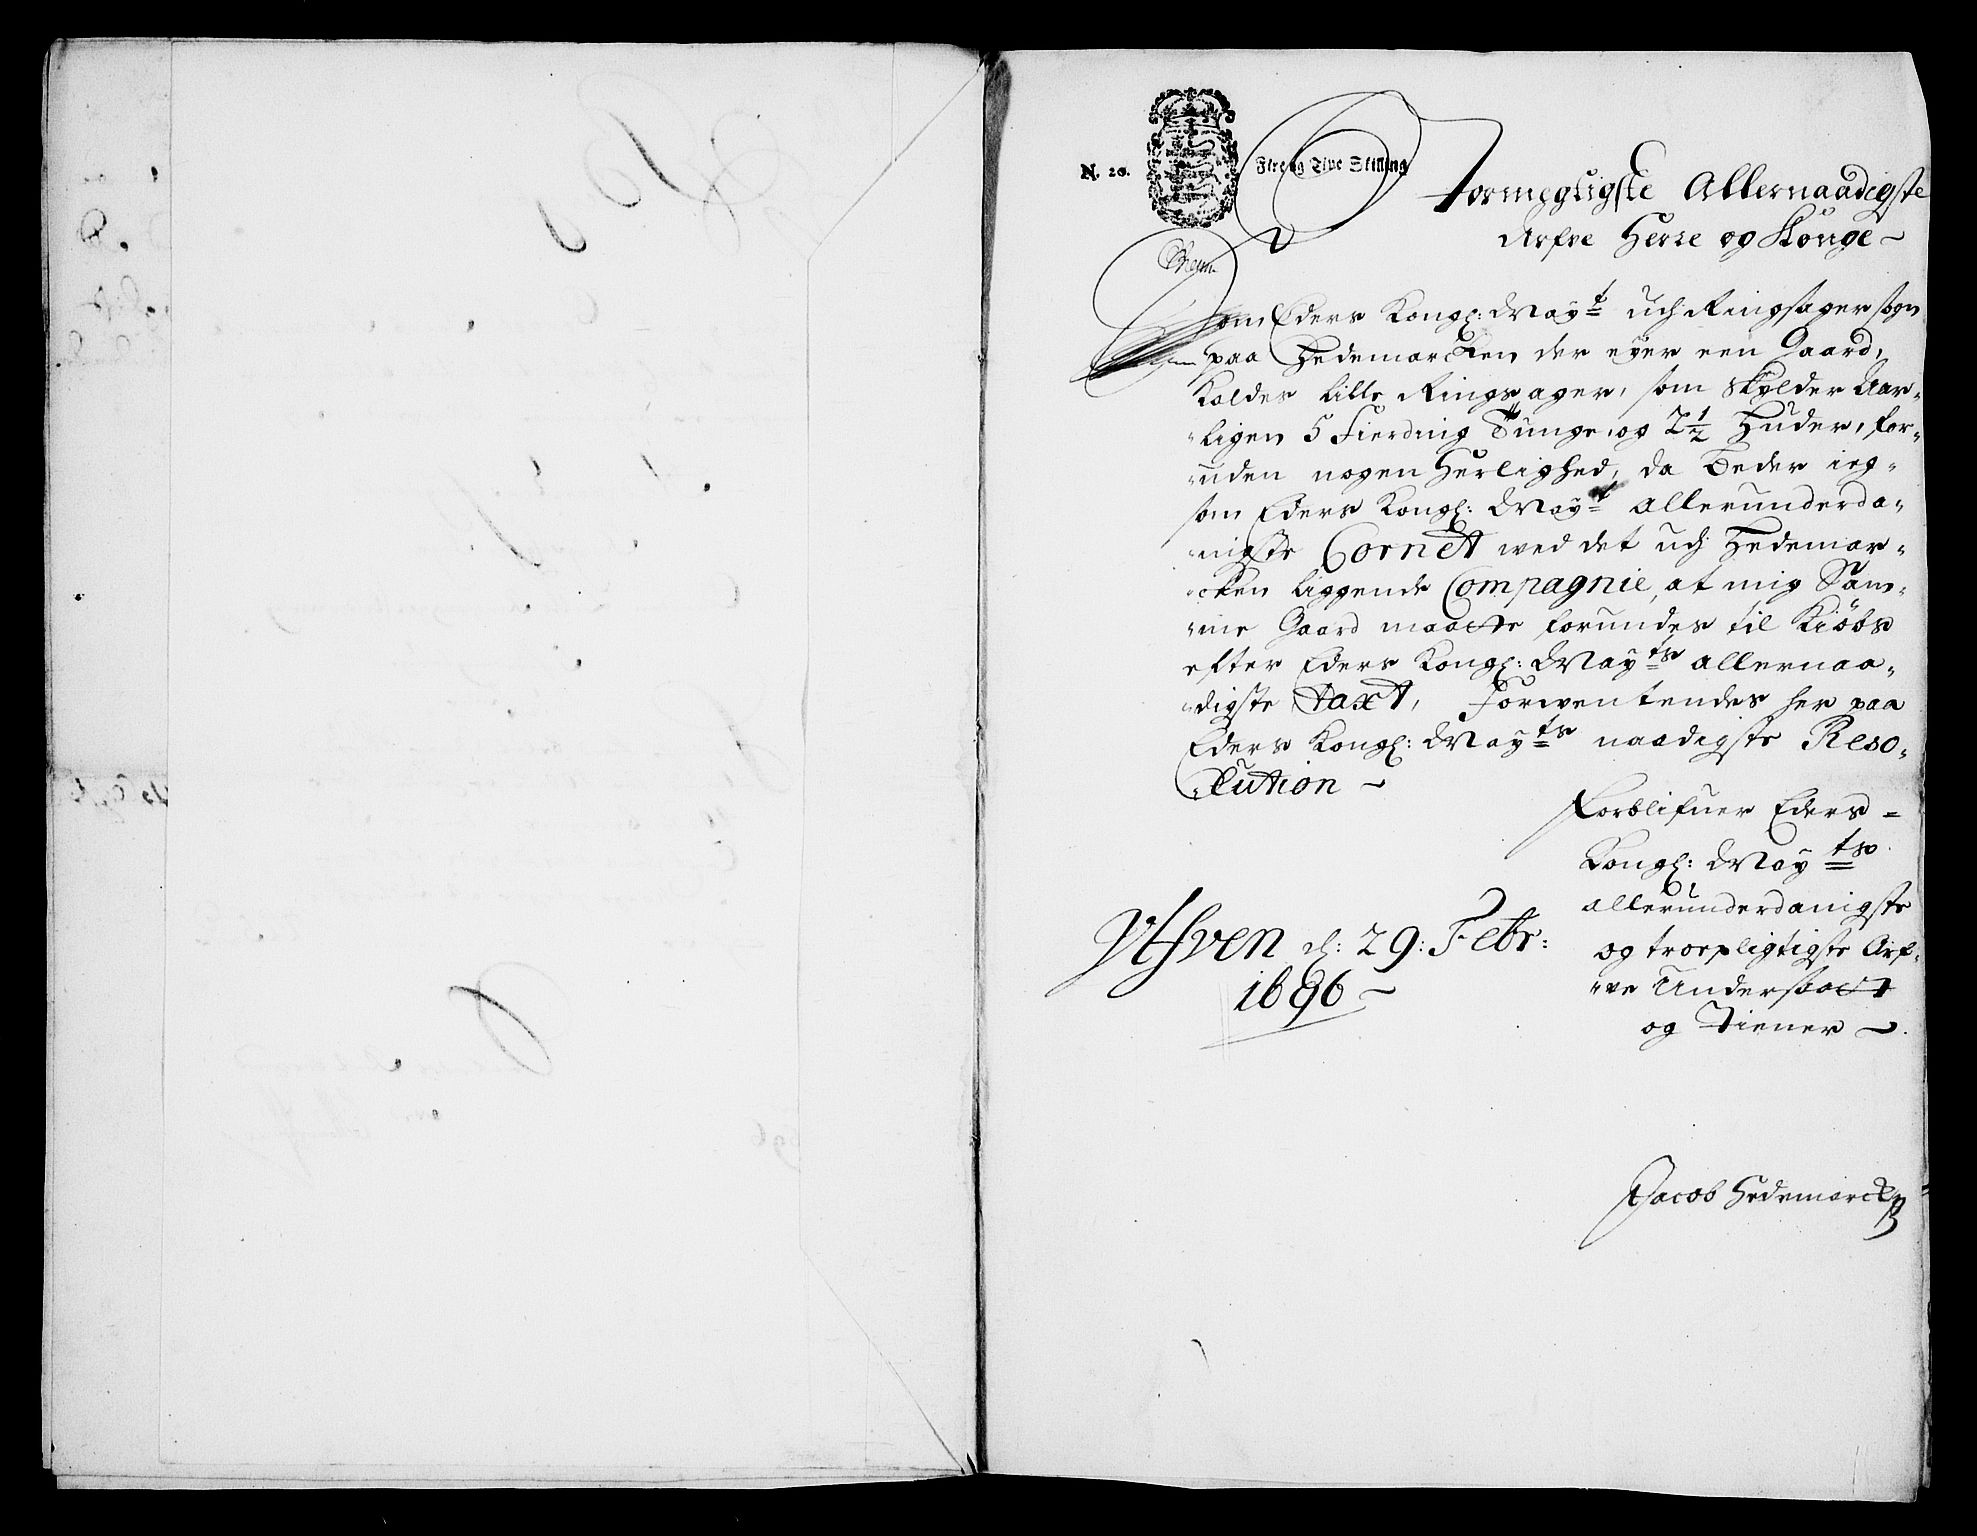 N. 20. Fire og Tive Skilling
Stormegtigste Allernaadigste
Arfve Herre og Konge ~
Som Eders Kongl: Mayt udj Ringsager sogn
paa Hedemarcken der eyer een Gaard,
Kaldes lille Ringsager, som skylder Aar-
ligen 5 Fierding Tunge, og 2½ Huder, for-
uden nogen Herlighed, da beder ieg
som Eders Kongl: Mayts allerunderda-
nigste Cornet wed det udj Hedemar-
cken liggende Compagnie, at mig Sam-
me Gaard maatte forundes til Kiöbs
efter Eders Kongl: Mayts allernaa-
digste taxt, Forwentendes her paa
Eders Kongl: Mayts naadigste Reso-
lution ~
Forblifuer Eders
Kongl: Mayts
allerunderdanigste
og troepligtigste Arf-
ve Undersaatt
og Tiener ~
d: 29: Febr:
1696 ~
Jacob Hedemarck